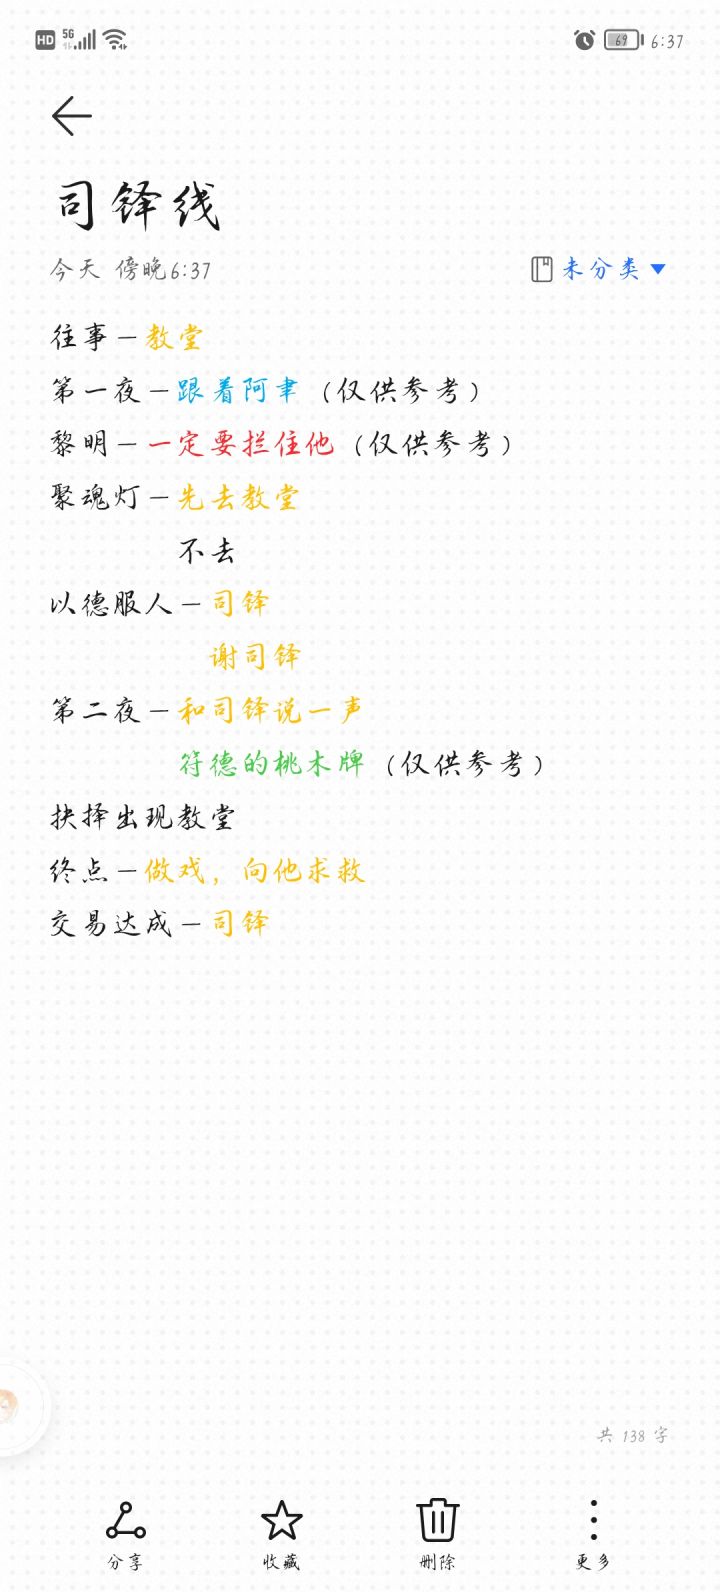 HD 5G 69 6:37
司铎线
今天 傍晚6:37 未分类
往事—教堂
第一夜—跟着阿聿（仅供参考）
黎明—一定要拦住他（仅供参考）
聚魂灯—先去教堂
不去
以德服人—司铎
谢司铎
第二夜—和司铎说一声
符德的桃木牌（仅供参考）
抉择出现教堂
终点—做戏，向他求救
交易达成—司铎
共 138 字
分享 收藏 删除 更多